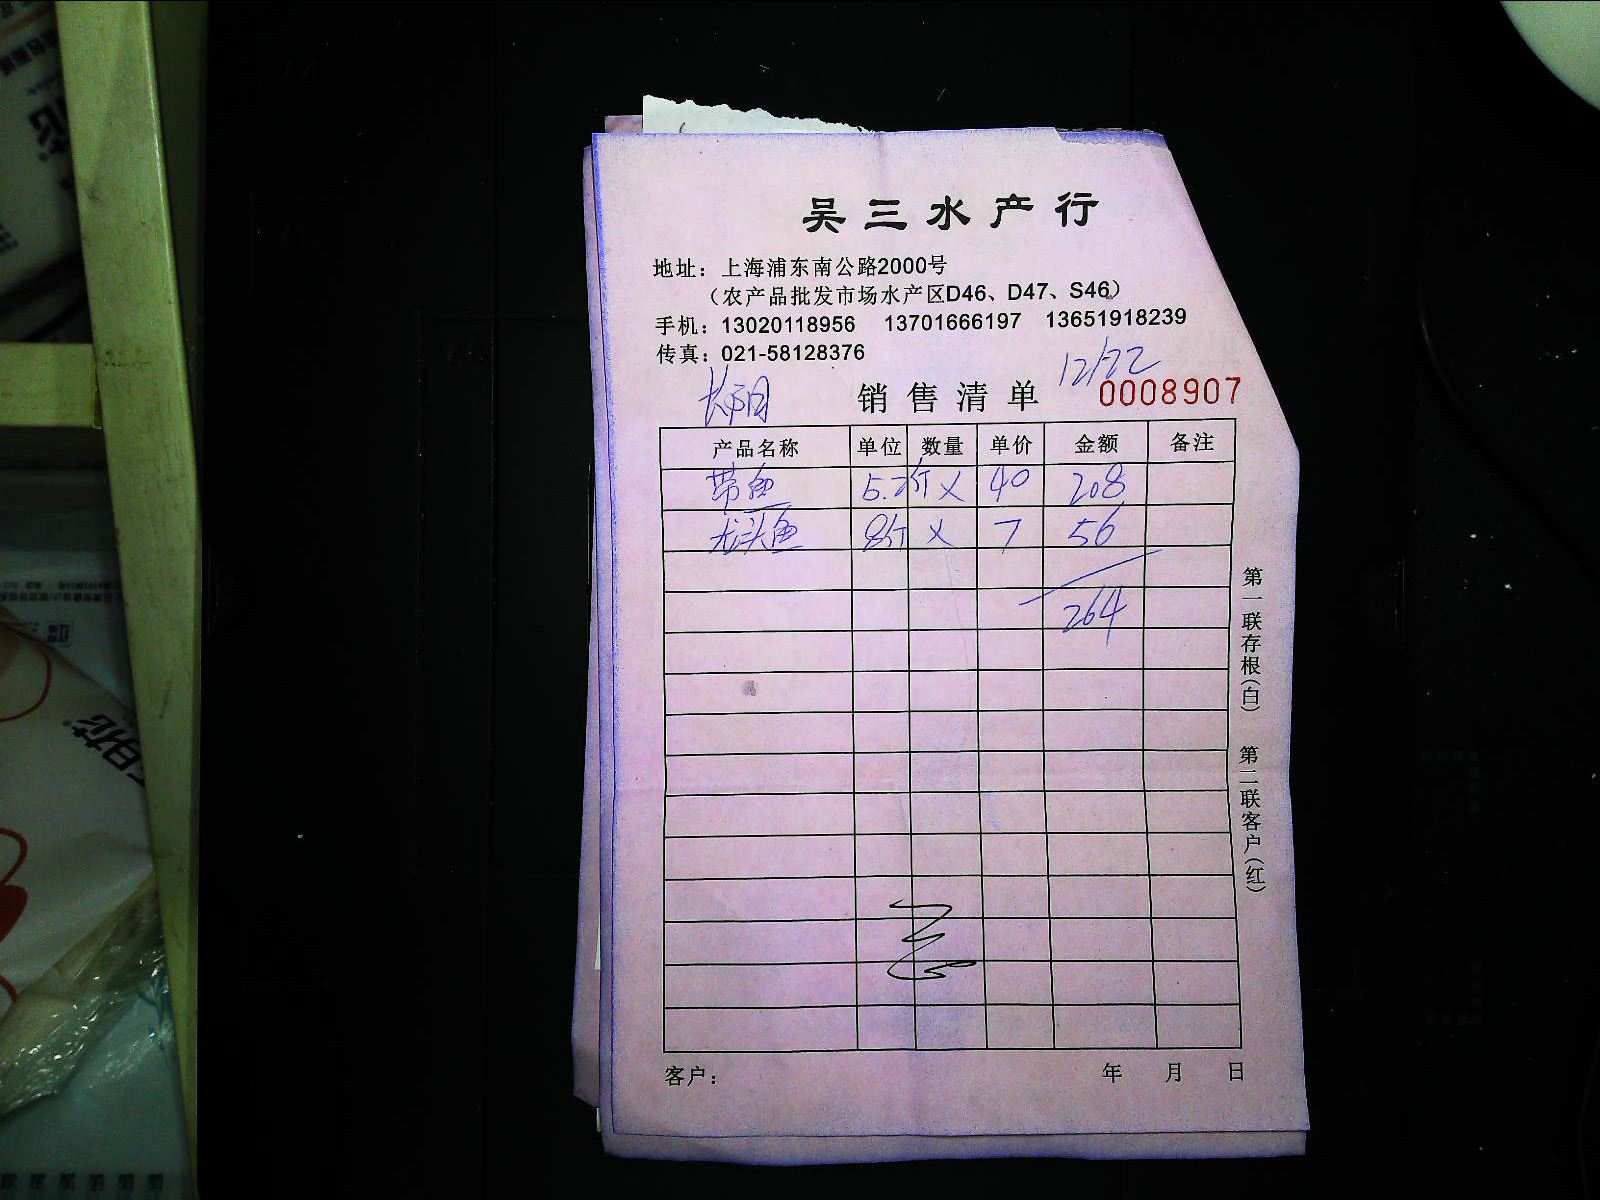 吴三水产行
地址：上海浦东南公路2000号
（农产品批发市场水产区D46、D47、S46）
手机：13020118956 13701666197 13651918239
传真：021-58128376
12/22
销售清单 0008907
产品名称 单位 数量 单价 金额 备注
带鱼 5.2斤 × 40 208
龙头鱼 8斤 × 7 56
264
第一联存根（白） 第二联客户（红）
客户： 年 月 日